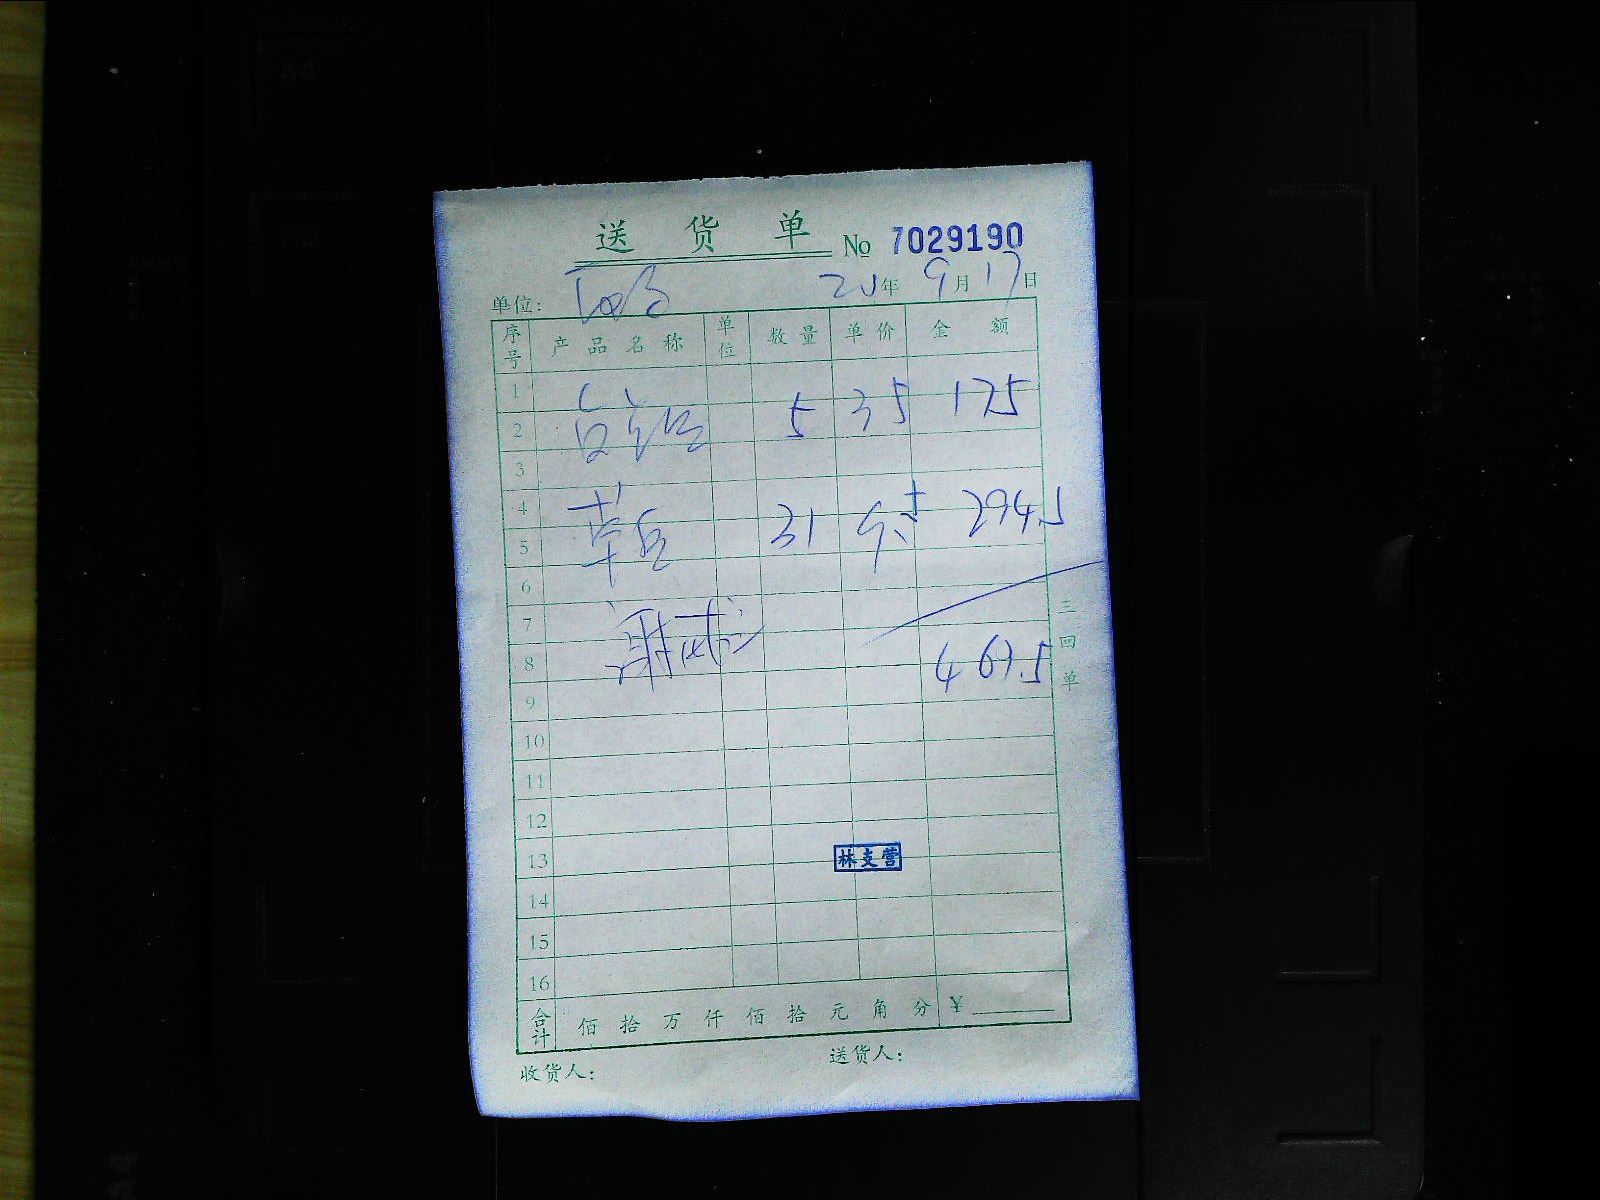 送货单 No 7029190
单位: 20年9月17日
序号 产品名称 单位 数量 单价 金额
1
2 5 35 175
3
4
5 31 294.5
6
7
8 469.5
9
10
11
12
13
14
15
16
林支营
合计 佰 拾 万 仟 佰 拾 元 角 分 ¥
收货人: 送货人:
三回单